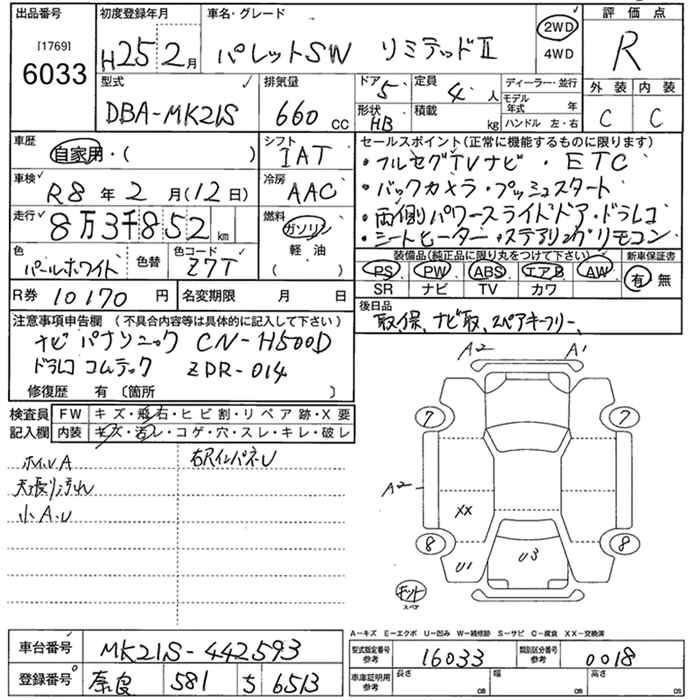 出品番号
[1769]
6033
初度登録年月
H25 2月
車名・グレード
パレットSW リミテッドII
2WD
4WD
評価点
R
外装 内装
C C
型式
DBA-MK21S
排気量
660 cc
ドア 5
形状 HB
定員 4 人
積載 kg
ディーラー・並行
モデル年式 年
ハンドル 左・右
車歴
自家用・( )
シフト
IAT
車検
R8年2月(12日)
冷房
AAC
走行
8万3千852 km
燃料
ガソリン
軽油
( )
色
パールホワイト
色替
色コード
Z7T
R券 10170円
名変期限 月 日
セールスポイント(正常に機能するものに限ります)
・フルセグTVナビ・ETC
・バックカメラ・プッシュスタート
・両側パワースライドドア・ドラレコ
・シートヒーター・ステアリングリモコン
装備品(純正品に限り丸をつけて下さい)
PS PW ABS エアB AW
SR ナビ TV カワ
新車保証書
有 無
後日品
取、保、ナビ取、スペアキーフリー、
注意事項申告欄(不具合内容等は具体的に記入して下さい)
ナビ パナソニック CN-H500D
ドラレコ コムテック ZDR-014
修復歴 有 〔箇所 〕
検査員記入欄
FW キズ・飛石・ヒビ割・リペア跡・X要
内装 キズ・汚レ・コゲ・穴・スレ・キレ・破レ
ホイルA
天張り汚れ
小A.U
右RインパネU
A2 A1
7 7
A2
XX
8 8
U1 U3
キット
スペア
A-キズ E-エクボ U-凹み W-補修跡 S-サビ C-腐食 XX-交換済
車台番号 MK21S-442593
登録番号 奈良 581 す 6513
型式指定番号 参考 16033
類別区分番号 参考 0018
車庫証明用 参考
長さ cm
幅 cm
高さ cm